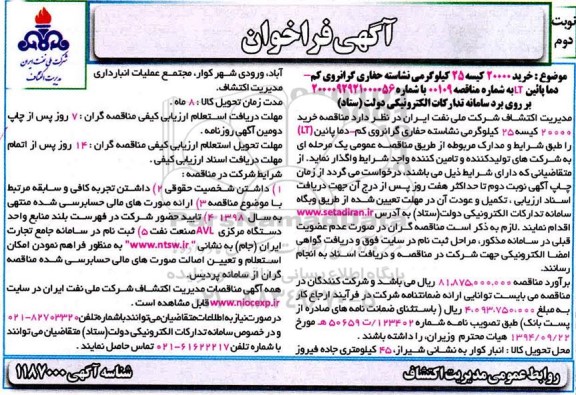 نوبت
دوم
آگهی فراخوان
شرکت ملی نفت ایران
مدیریت اکتشاف
موضوع : خرید ۲۰۰۰۰ کیسه ۲۵ کیلوگرمی نشاسته حفاری گرانروی کم-
دما پائین LT به شماره مناقصه ۰۰۱۰۹ با شماره ۲۰۰۰۰۹۲۹۲۱۰۰۰۰۵۶
بر روی برد سامانه تدارکات الکترونیکی دولت (ستاد)
مدیریت اکتشاف شرکت ملی نفت ایران در نظر دارد مناقصه خرید
۲۰۰۰۰ کیسه ۲۵ کیلوگرمی نشاسته حفاری گرانروی کم-دما پائین (LT)
را طبق شرایط و مدارک مربوطه از طریق مناقصه عمومی یک مرحله ای
به شرکت های تولیدکننده و تامین کننده واجد شرایط واگذار نماید. از
متقاضیانی که دارای شرایط ذیل می باشند، درخواست می گردد از زمان
چاپ آگهی نوبت دوم تا حداکثر هفت روز پس از درج آن جهت دریافت
اسناد ارزیابی ، تکمیل و عودت آن در مهلت تعیین شده از طریق وبگاه
سامانه تدارکات الکترونیکی دولت(ستاد) به آدرس www.setadiran.ir
اقدام نمایند. لازم به ذکر است مناقصه گران در صورت عدم عضویت
قبلی در سامانه مذکور، مراحل ثبت نام در سایت فوق و دریافت گواهی
امضا الکترونیکی جهت شرکت در مناقصه و دریافت اسناد به انجام
رسانند.
برآورد مناقصه ۸۱,۸۷۵,۰۰۰,۰۰۰ ریال می باشد و شرکت کنندگان در
مناقصه می بایست توانایی ارائه ضمانتنامه شرکت در فرآیند ارجاع کار
به مبلغ ۴,۰۹۳,۷۵۰,۰۰۰ ریال ( باستثنای ضمانت نامه های صادره از
پست بانک) طبق تصویب نامه شماره ۱۲۳۴۰۲/ت ۵۰۶۵۹ هـ مورخ
۱۳۹۴/۰۹/۲۲ هیات محترم وزیران، را داشته باشند .
محل تحویل کالا : انبار کوار به نشانی شیراز، ۴۵ کیلومتری جاده فیروز
آباد، ورودی شهر کوار، مجتمع عملیات انبارداری
مدیریت اکتشاف.
مدت زمان تحویل کالا : ۸ ماه .
مهلت دریافت استعلام ارزیابی کیفی مناقصه گران : ۷ روز پس از چاپ
دومین آگهی روزنامه .
مهلت تحویل استعلام ارزیابی کیفی مناقصه گران : ۱۴ روز پس از اتمام
مهلت دریافت اسناد ارزیابی کیفی .
شرایط شرکت در مناقصه :
۱) داشتن شخصیت حقوقی ۲) داشتن تجربه کافی و سابقه مرتبط
با موضوع مناقصه ۳) ارائه صورت های مالی حسابرسی شده منتهی
به سال ۱۳۹۸ ۴) تایید حضور شرکت در فهرست بلند منابع واحد
دستگاه مرکزی AVL صنعت نفت ۵) ثبت نام در سامانه جامع تجارت
ایران (جام) به نشانی "www.ntsw.ir" به منظور فراهم نمودن امکان
استعلام و تعیین اصالت صورت های مالی حسابرسی شده مناقصه
گران از سامانه پردیس.
همه آگهی مناقصات مدیریت اکتشاف شرکت ملی نفت ایران در سایت
www.niocexp.ir قابل مشاهده است .
در صورت نیاز به اطلاعات متقاضیان می توانند با شماره تلفن ۸۲۷۰۳۳۲۰-۰۲۱
و در خصوص سامانه تدارکات الکترونیکی دولت(ستاد) متقاضیان می توانند
با شماره تلفن ۶۱۶۲۲۲۱۷-۰۲۱ تماس حاصل نمایند .
روابط عمومی مدیریت اکتشاف
شناسه آگهی ۱۱۸۷۰۰۰